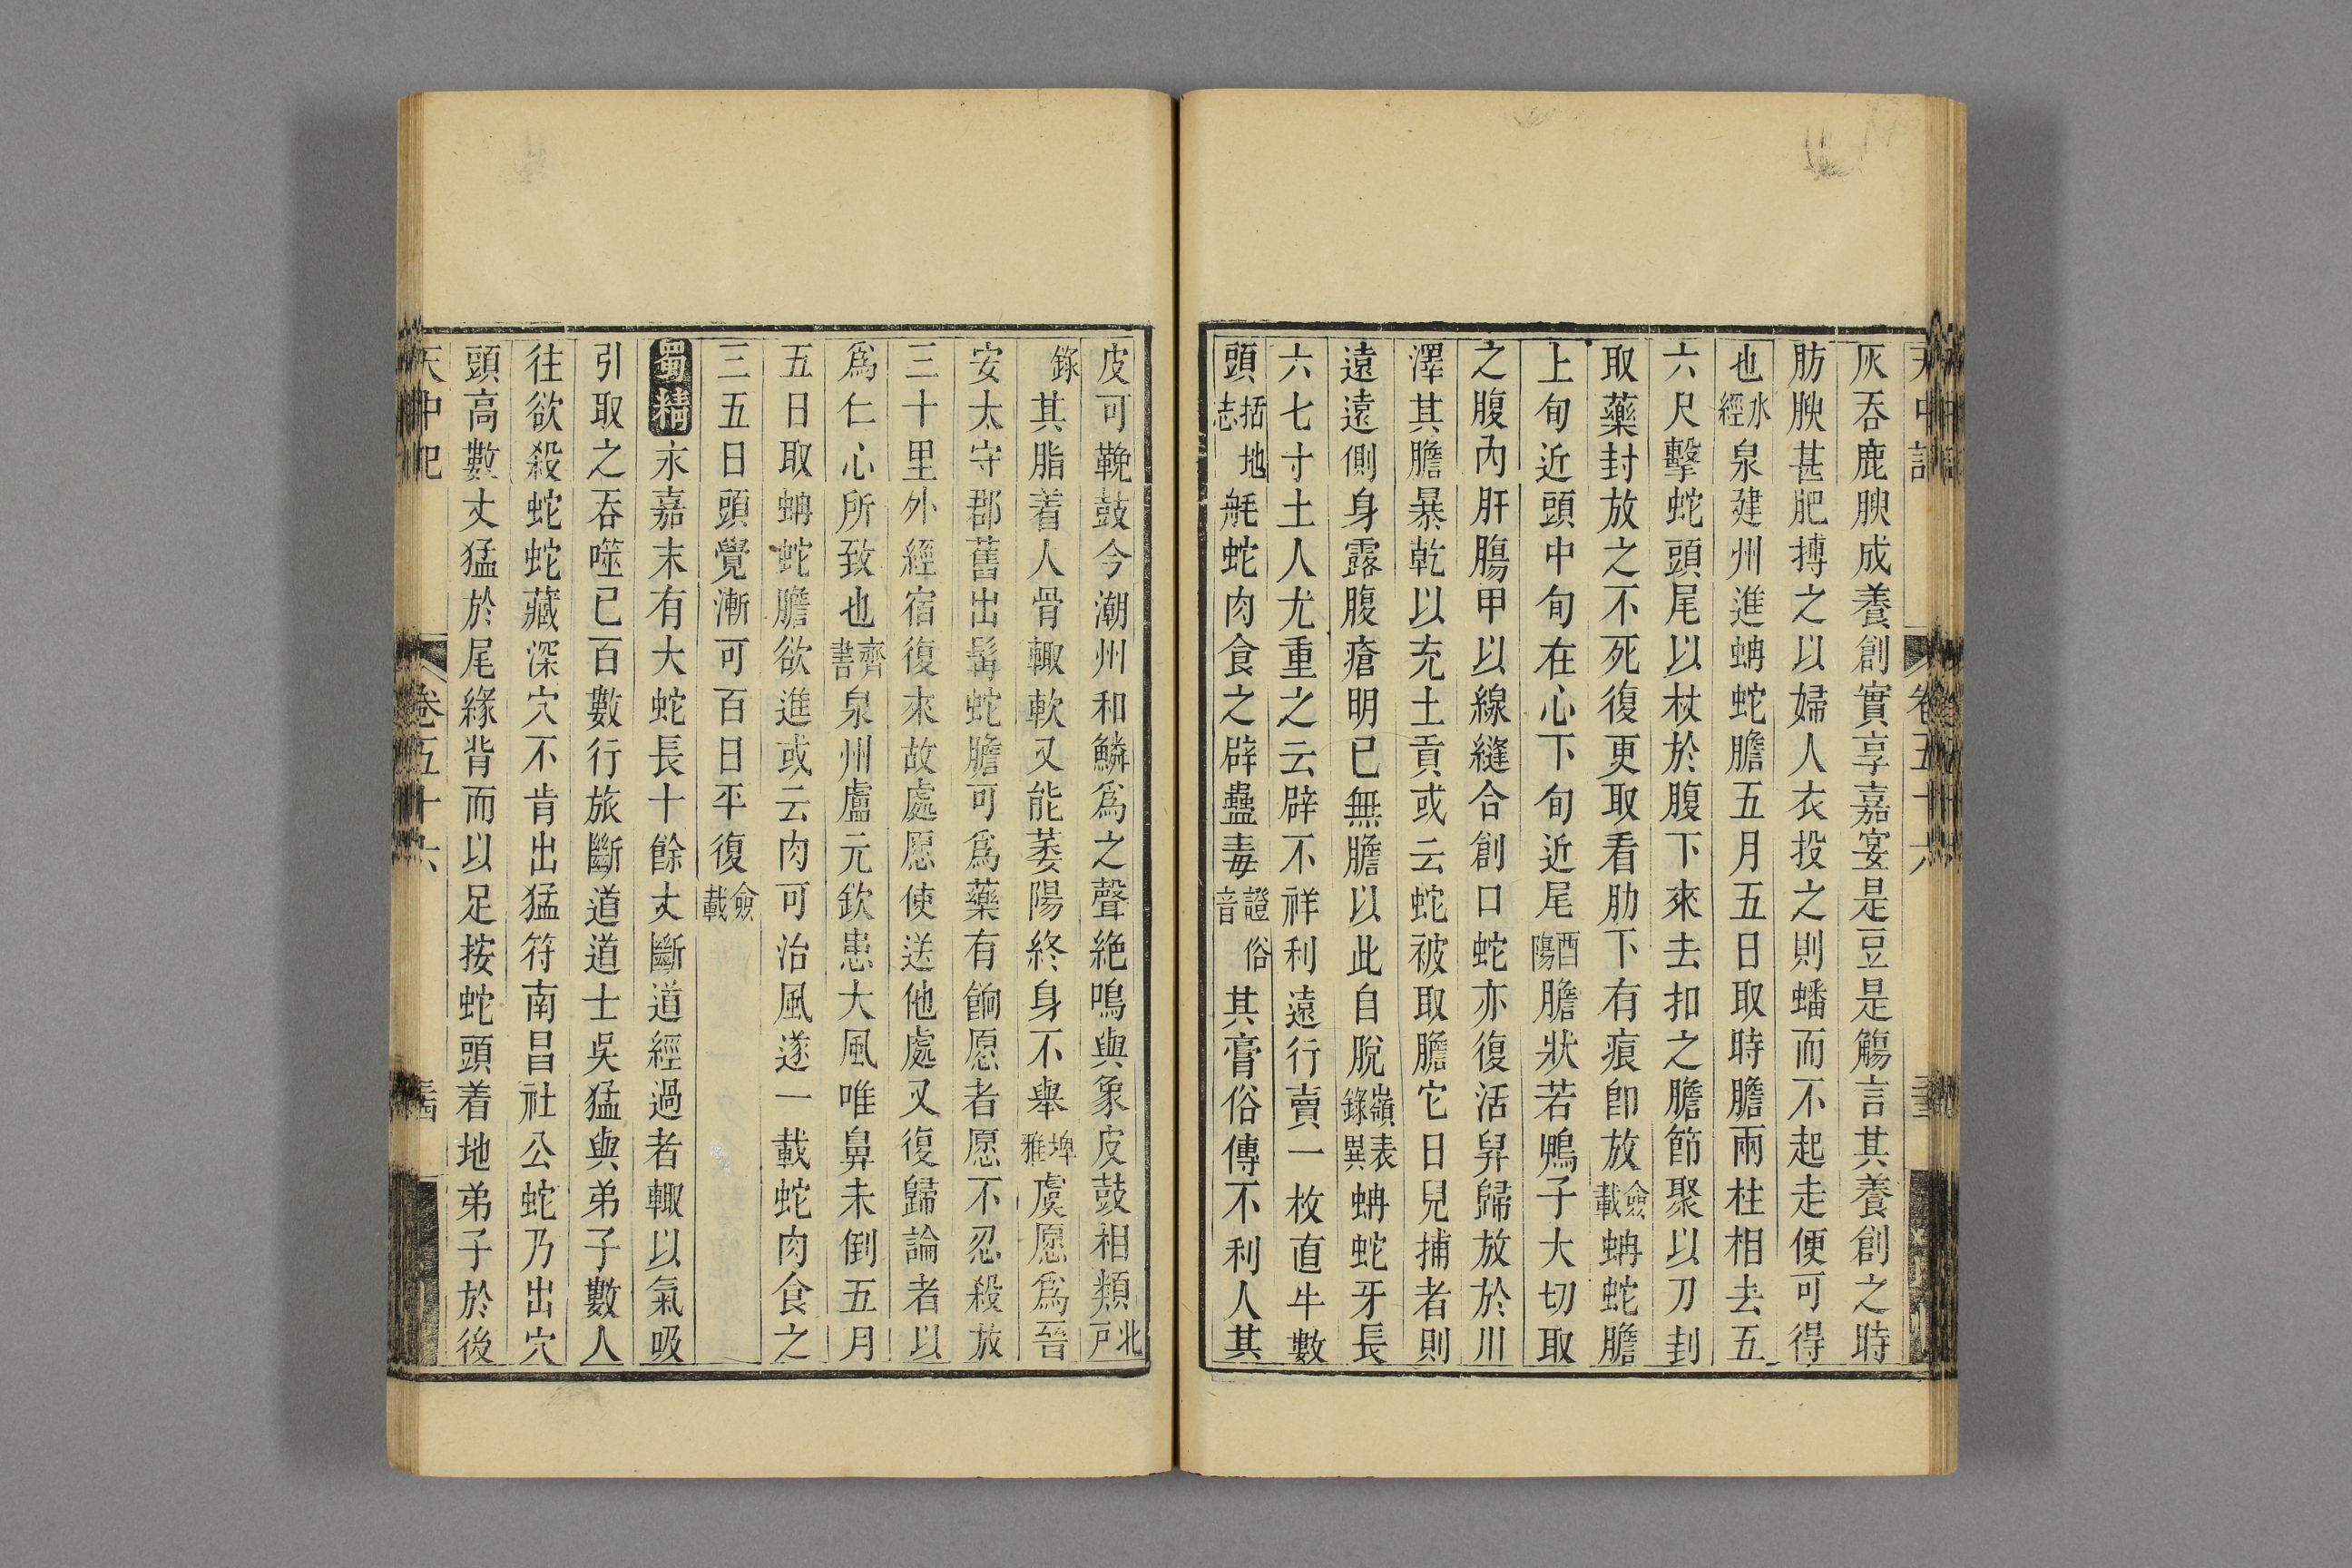 灰吞鹿腴成養創賓享嘉宴是豆是觴言其養創之時
肪腴甚肥搏之以婦人衣投之則蟠而不起走便可得
也水經泉建州進蚺蛇膽五月五日取時膽兩柱相去五
六尺擊蛇頭尾以杖於腹下來去扣之膽節聚以刀刲
取藥封放之不死復更取看肋下有痕卽放僉載蚺蛇膽
上旬近頭中旬在心下旬近尾酉陽膽狀若鴨子大切取
之腹內肝腸甲以線縫合創口蛇亦復活舁歸放於川
澤其膽暴乾以充土貢或云蛇被取膽它日兒捕者則
遠遠側身露腹瘡明已無膽以此自脫嶺表錄異蚺蛇牙長
六七寸土人尤重之云辟不祥利遠行賣一枚直牛數
頭括地志蚝蛇肉食之辟蠱毒證俗音其膏俗傳不利人其
皮可鞔鼓今潮州和鱗爲之聲絶鳴與象皮鼓相類北戸
錄其脂着人骨輙軟又能萎陽終身不舉埤雅虞愿爲晉
安太守郡舊出髯蛇膽可爲藥有餉愿者愿不忍殺放
三十里外經宿復來故處愿使送他處又復歸論者以
爲仁心所致也齊書泉州盧元欽患大風唯鼻未倒五月
五日取蚺蛇膽欲進或云肉可治風遂一載蛇肉食之
三五日頭覺漸可百日平復僉載
蜀精永嘉末有大蛇長十餘丈斷道經過者輙以氣吸
引取之吞噬已百數行旅斷道道士吳猛與弟子數人
往欲殺蛇蛇藏深穴不肯出猛符南昌社公蛇乃出穴
頭高數丈猛於尾緣背而以足按蛇頭着地弟子於後
天中記 卷五十六